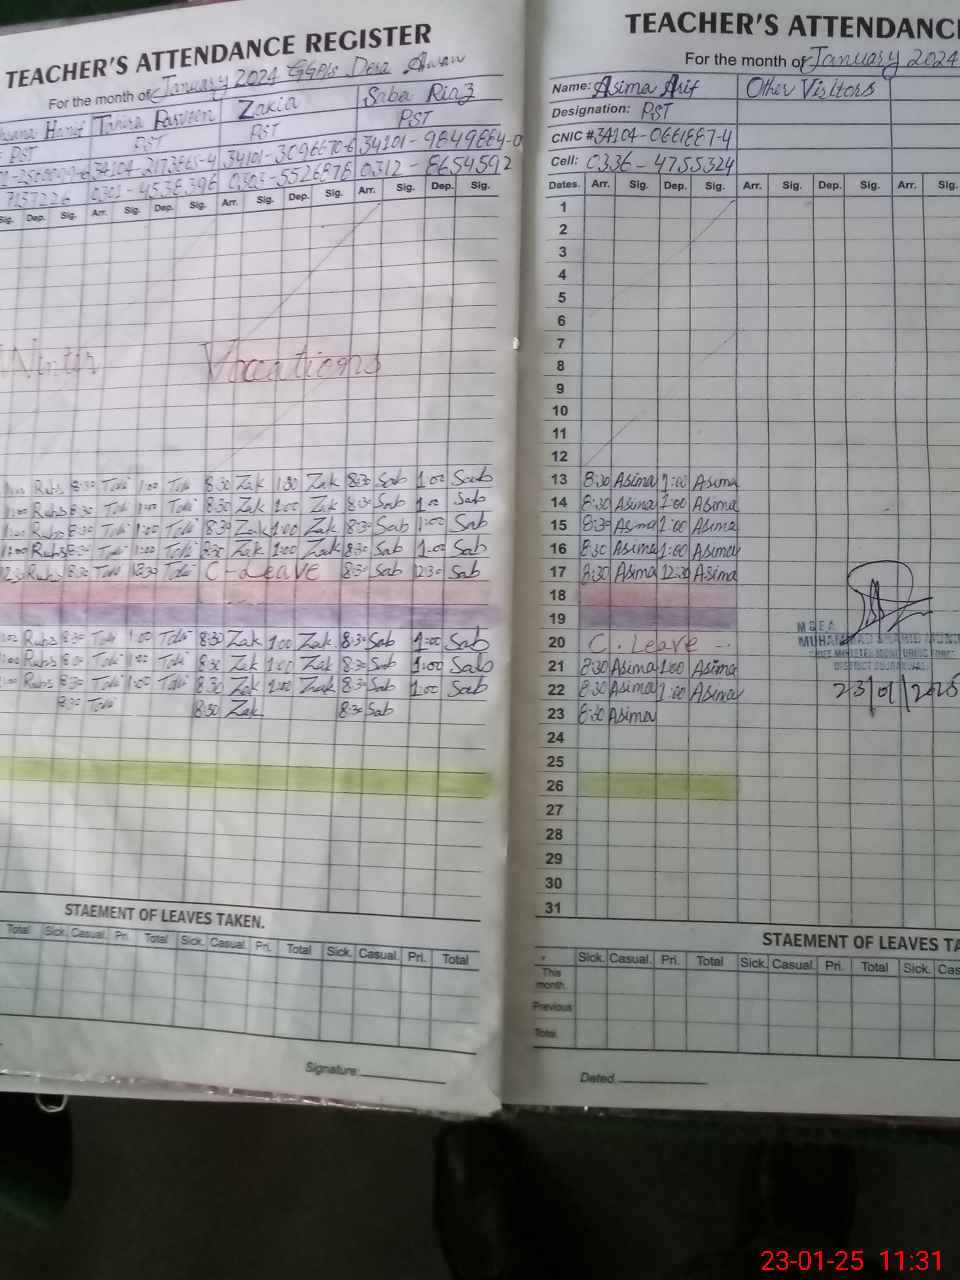 TEACHER'S ATTENDANCE REGISTER
For the month of January 2024 GGPS Desa Awan
Hanif Tahira Parveen Zakia Saba Riaz
PST PST PST PST
34104-2173865-4 34101-3096670-6 34101-9849664-0
7157226 0301-4538396 0303-5526876 0312-8654592
Sig. Dep. Sig. Arr. Sig. Dep. Sig. Arr. Sig. Dep. Sig. Arr. Sig. Dep. Sig.
Winter Vacations
1:00 Rubs 8:30 Tahi 1:00 Tahi 8:30 Zak 1:00 Zak 8:30 Sab 1:00 Sab
1:00 Rubs 8:30 Tahi 1:00 Tahi 8:30 Zak 1:00 Zak 8:30 Sab 1:00 Sab
1:00 Rubs 8:30 Tahi 1:00 Tahi 8:30 Zak 1:00 Zak 8:30 Sab 1:00 Sab
1:00 Rubs 8:30 Tahi 1:00 Tahi 8:30 Zak 1:00 Zak 8:30 Sab 1:00 Sab
12:30 Rubs 8:30 Tahi 12:30 Tahi C-Leave 8:30 Sab 12:30 Sab
1:00 Rubs 8:30 Tahi 1:00 Tahi 8:30 Zak 1:00 Zak 8:30 Sab 1:00 Sab
1:00 Rubs 8:30 Tahi 1:00 Tahi 8:30 Zak 1:00 Zak 8:30 Sab 1:00 Sab
1:00 Rubs 8:30 Tahi 1:00 Tahi 8:30 Zak 1:00 Zak 8:30 Sab 1:00 Sab
8:30 Tahi 8:30 Zak 8:30 Sab
STAEMENT OF LEAVES TAKEN.
Total Sick. Casual. Pri. Total Sick. Casual. Pri. Total Sick. Casual. Pri. Total
Signature:
TEACHER'S ATTENDANC
For the month of January 2024
Name: Asima Arif Other Visitors
Designation: PST
CNIC # 34104-0661887-4
Cell: 0336-4755324
Dates. Arr. Sig. Dep. Sig. Arr. Sig. Dep. Sig. Arr. Sig.
1
2
3
4
5
6
7
8
9
10
11
12
13 8:30 Asima 1:00 Asima
14 8:30 Asima 1:00 Asima
15 8:30 Asima 1:00 Asima
16 8:30 Asima 1:00 Asima
17 8:30 Asima 12:30 Asima
18
19
20 C. Leave
21 8:30 Asima 1:00 Asima
22 8:30 Asima 1:00 Asima
23 8:30 Asima
24
25
26
27
28
29
30
31
M & E A
MUHAMMAD
23/01/2025
STAEMENT OF LEAVES TA
Sick. Casual. Pri. Total Sick. Casual. Pri. Total Sick. Cas
This month.
Previous
Total.
Dated.
23-01-25 11:31